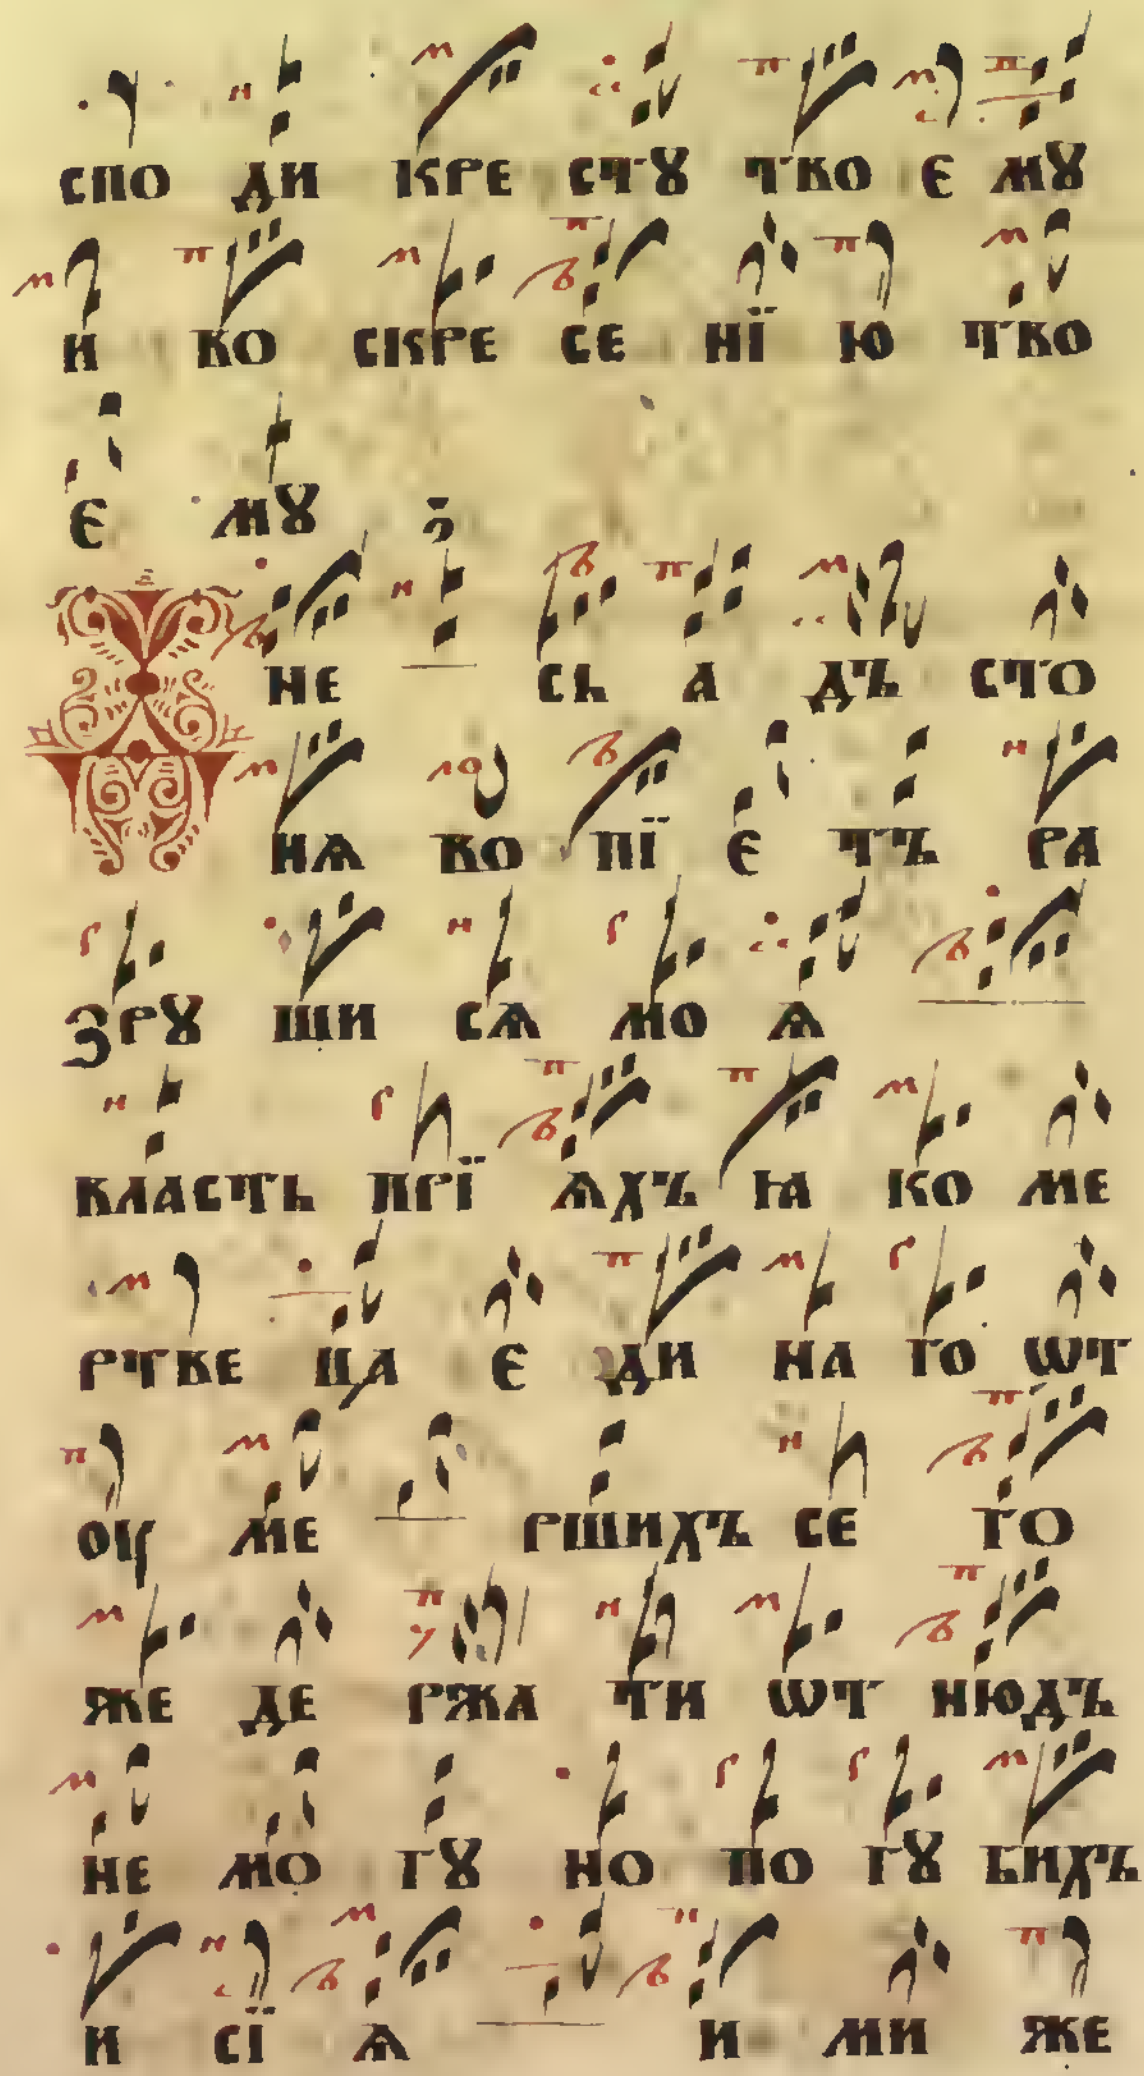 спо ди кре стꙋ тво є мꙋ
и во скре се нї ю тво
є мꙋ
Д҃ не сь а дъ сто
нѧ во пї є тъ ра
зрꙋ ши сѧ мо ѧ
власть прї ѧхъ ꙗ ко ме
ртве ца є ди на го ѿ
оу ме ршихъ се го
же де ржа ти ѿ нюдъ
не мо гꙋ но по гꙋ бихъ
и сї ѧ и ми же